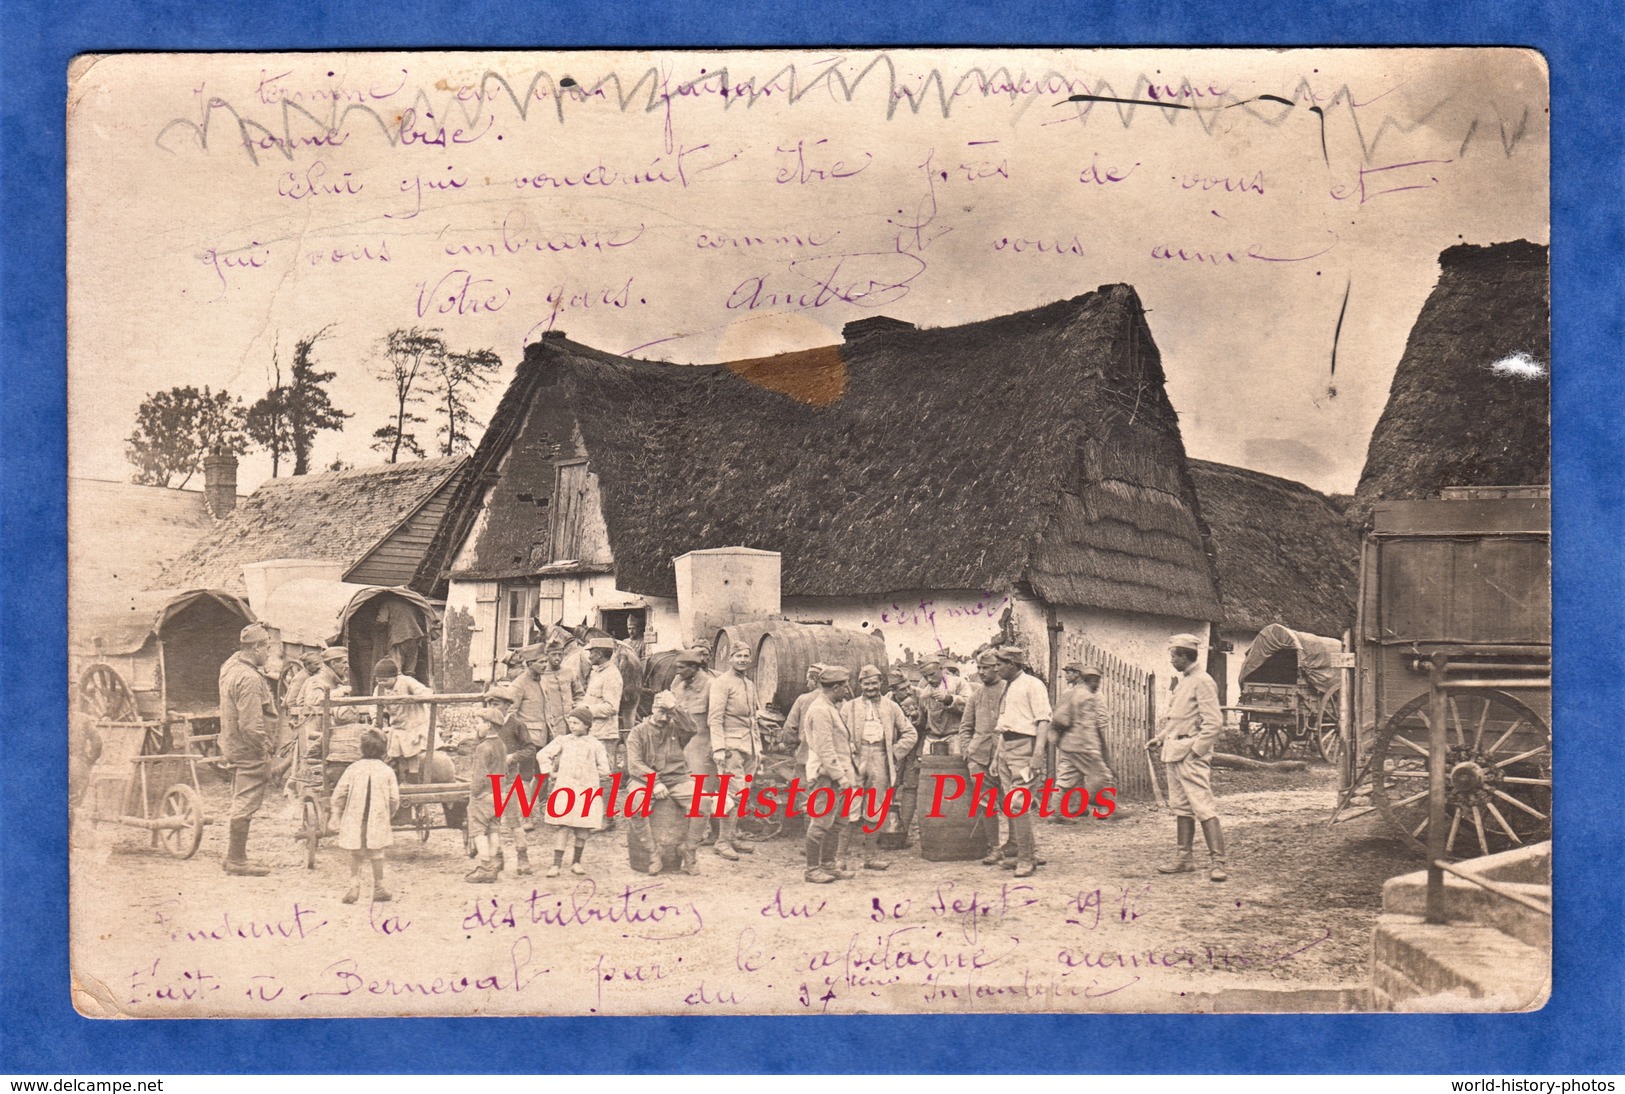 Je termine en vous faisant à chacun une
bonne bise.
Celui qui voudrait être près de vous et
qui vous embrasse comme il vous aime
Votre gars.
c'est moi
World History Photos
Pendant la distribution du 30 Sept 191
Fait à Berneval par le capitaine
du 97ième Infanterie
www.delcampe.net
world-history-photos